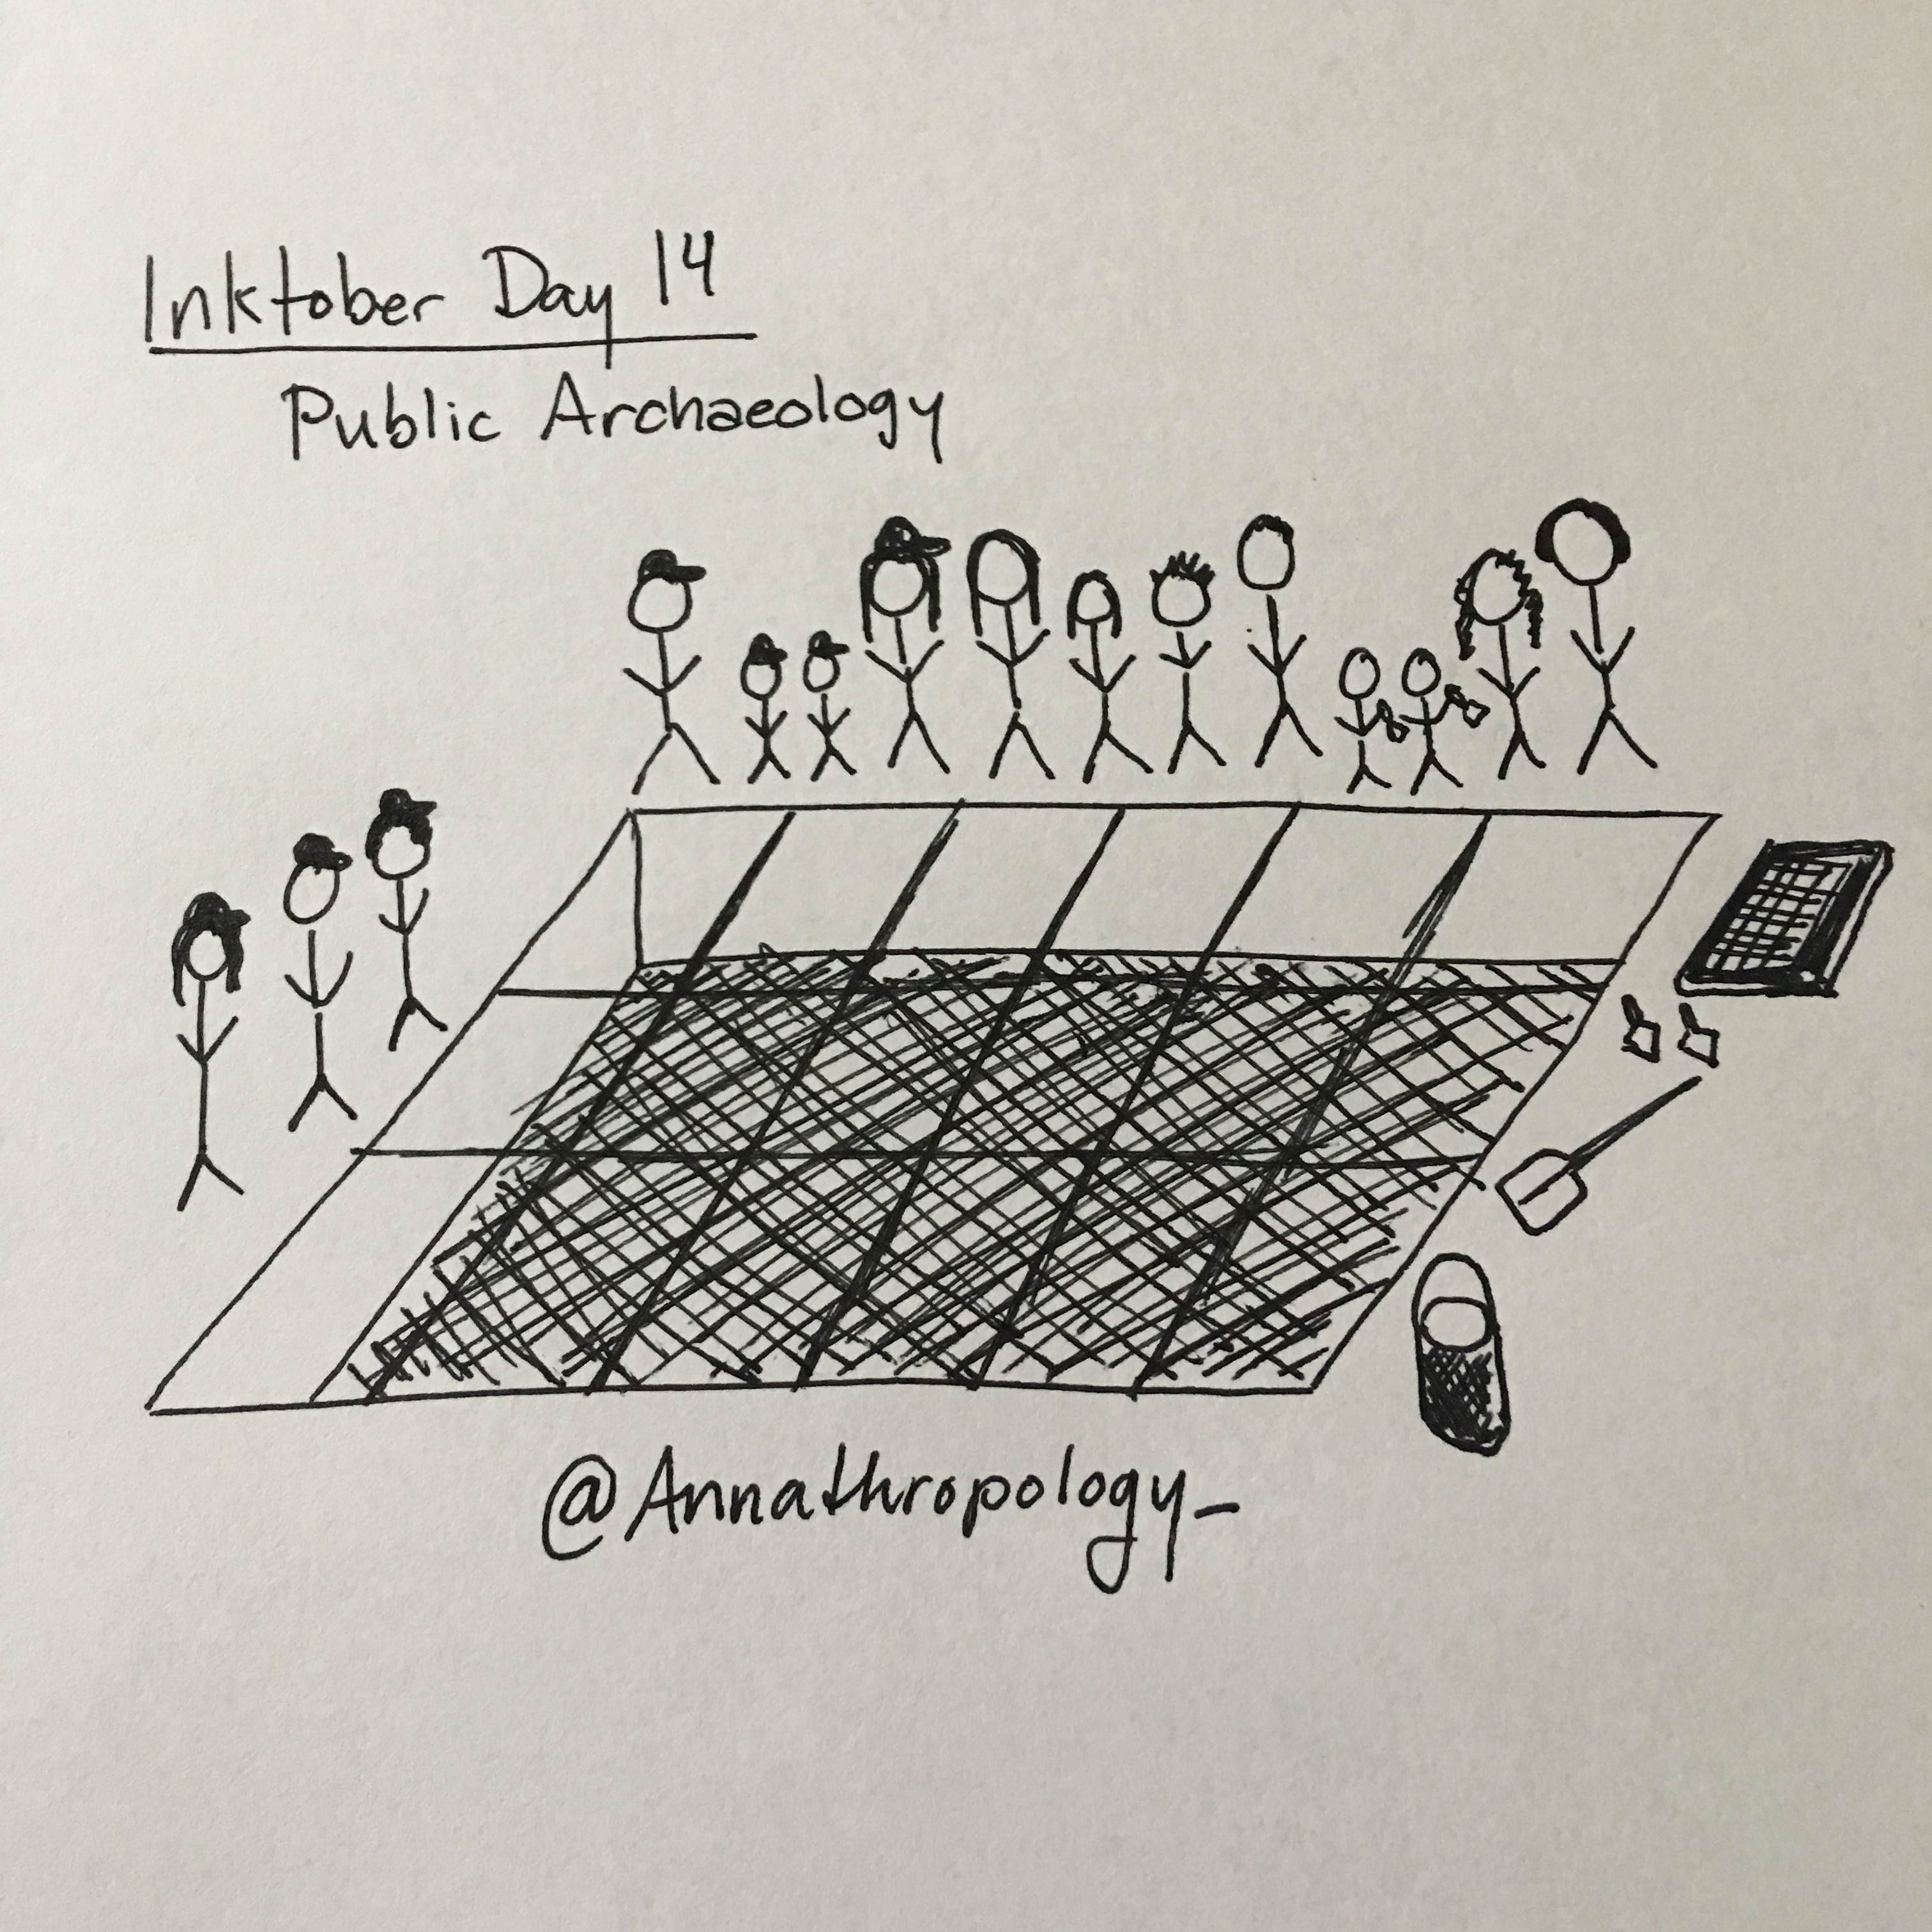 Inktober Day 14
Public Archaeology
@Annathropology_